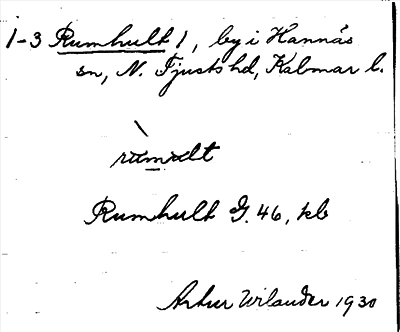 1-3 Rumhult 1, by i Hannäs
sn, N. Tjusts hd, Kalmar l.
rùmult
Rumhult G. 46, kb
Artur Wilander 1930